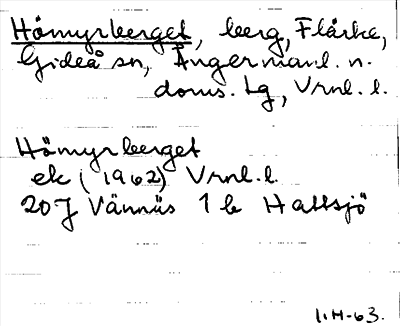 Hömyrberget, berg, Flärke,
Gideå sn, Ångermanl. n.
doms. Lg, Vrnl. l.
Hömyrberget
ek (1962) Vrnl. l.
20J Vännäs 1 b Hattsjö
I.H-63.